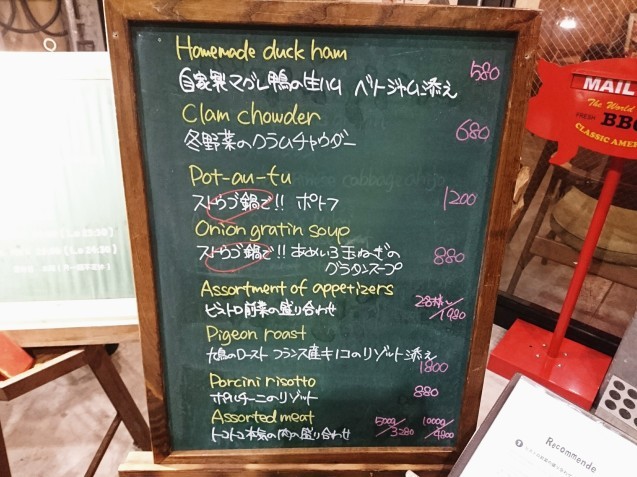 Homemade duck ham
自家製マグレ鴨の生ハム ベトジャム添え 580
Clam chowder 680
冬野菜のクラムチャウダー
Pot-au-fu
ストウブ鍋で!! ポトフ 1200
Onion gratin soup
ストウブ鍋で!! あめいろ玉ねぎの 880
グラタンスープ
Assortment of appetizers
ビストロ前菜の盛り合わせ 1980
Pigeon roast
鳩のロースト フランス産キノコのリゾット添え
1800
Porcini risotto
ポルチーニのリゾット 880
Assorted meat
トコトコ本気の肉の盛り合わせ 500g/3280 1000g/
MAIL
The World
FRESH BB
CLASSIC AMER
Recommende